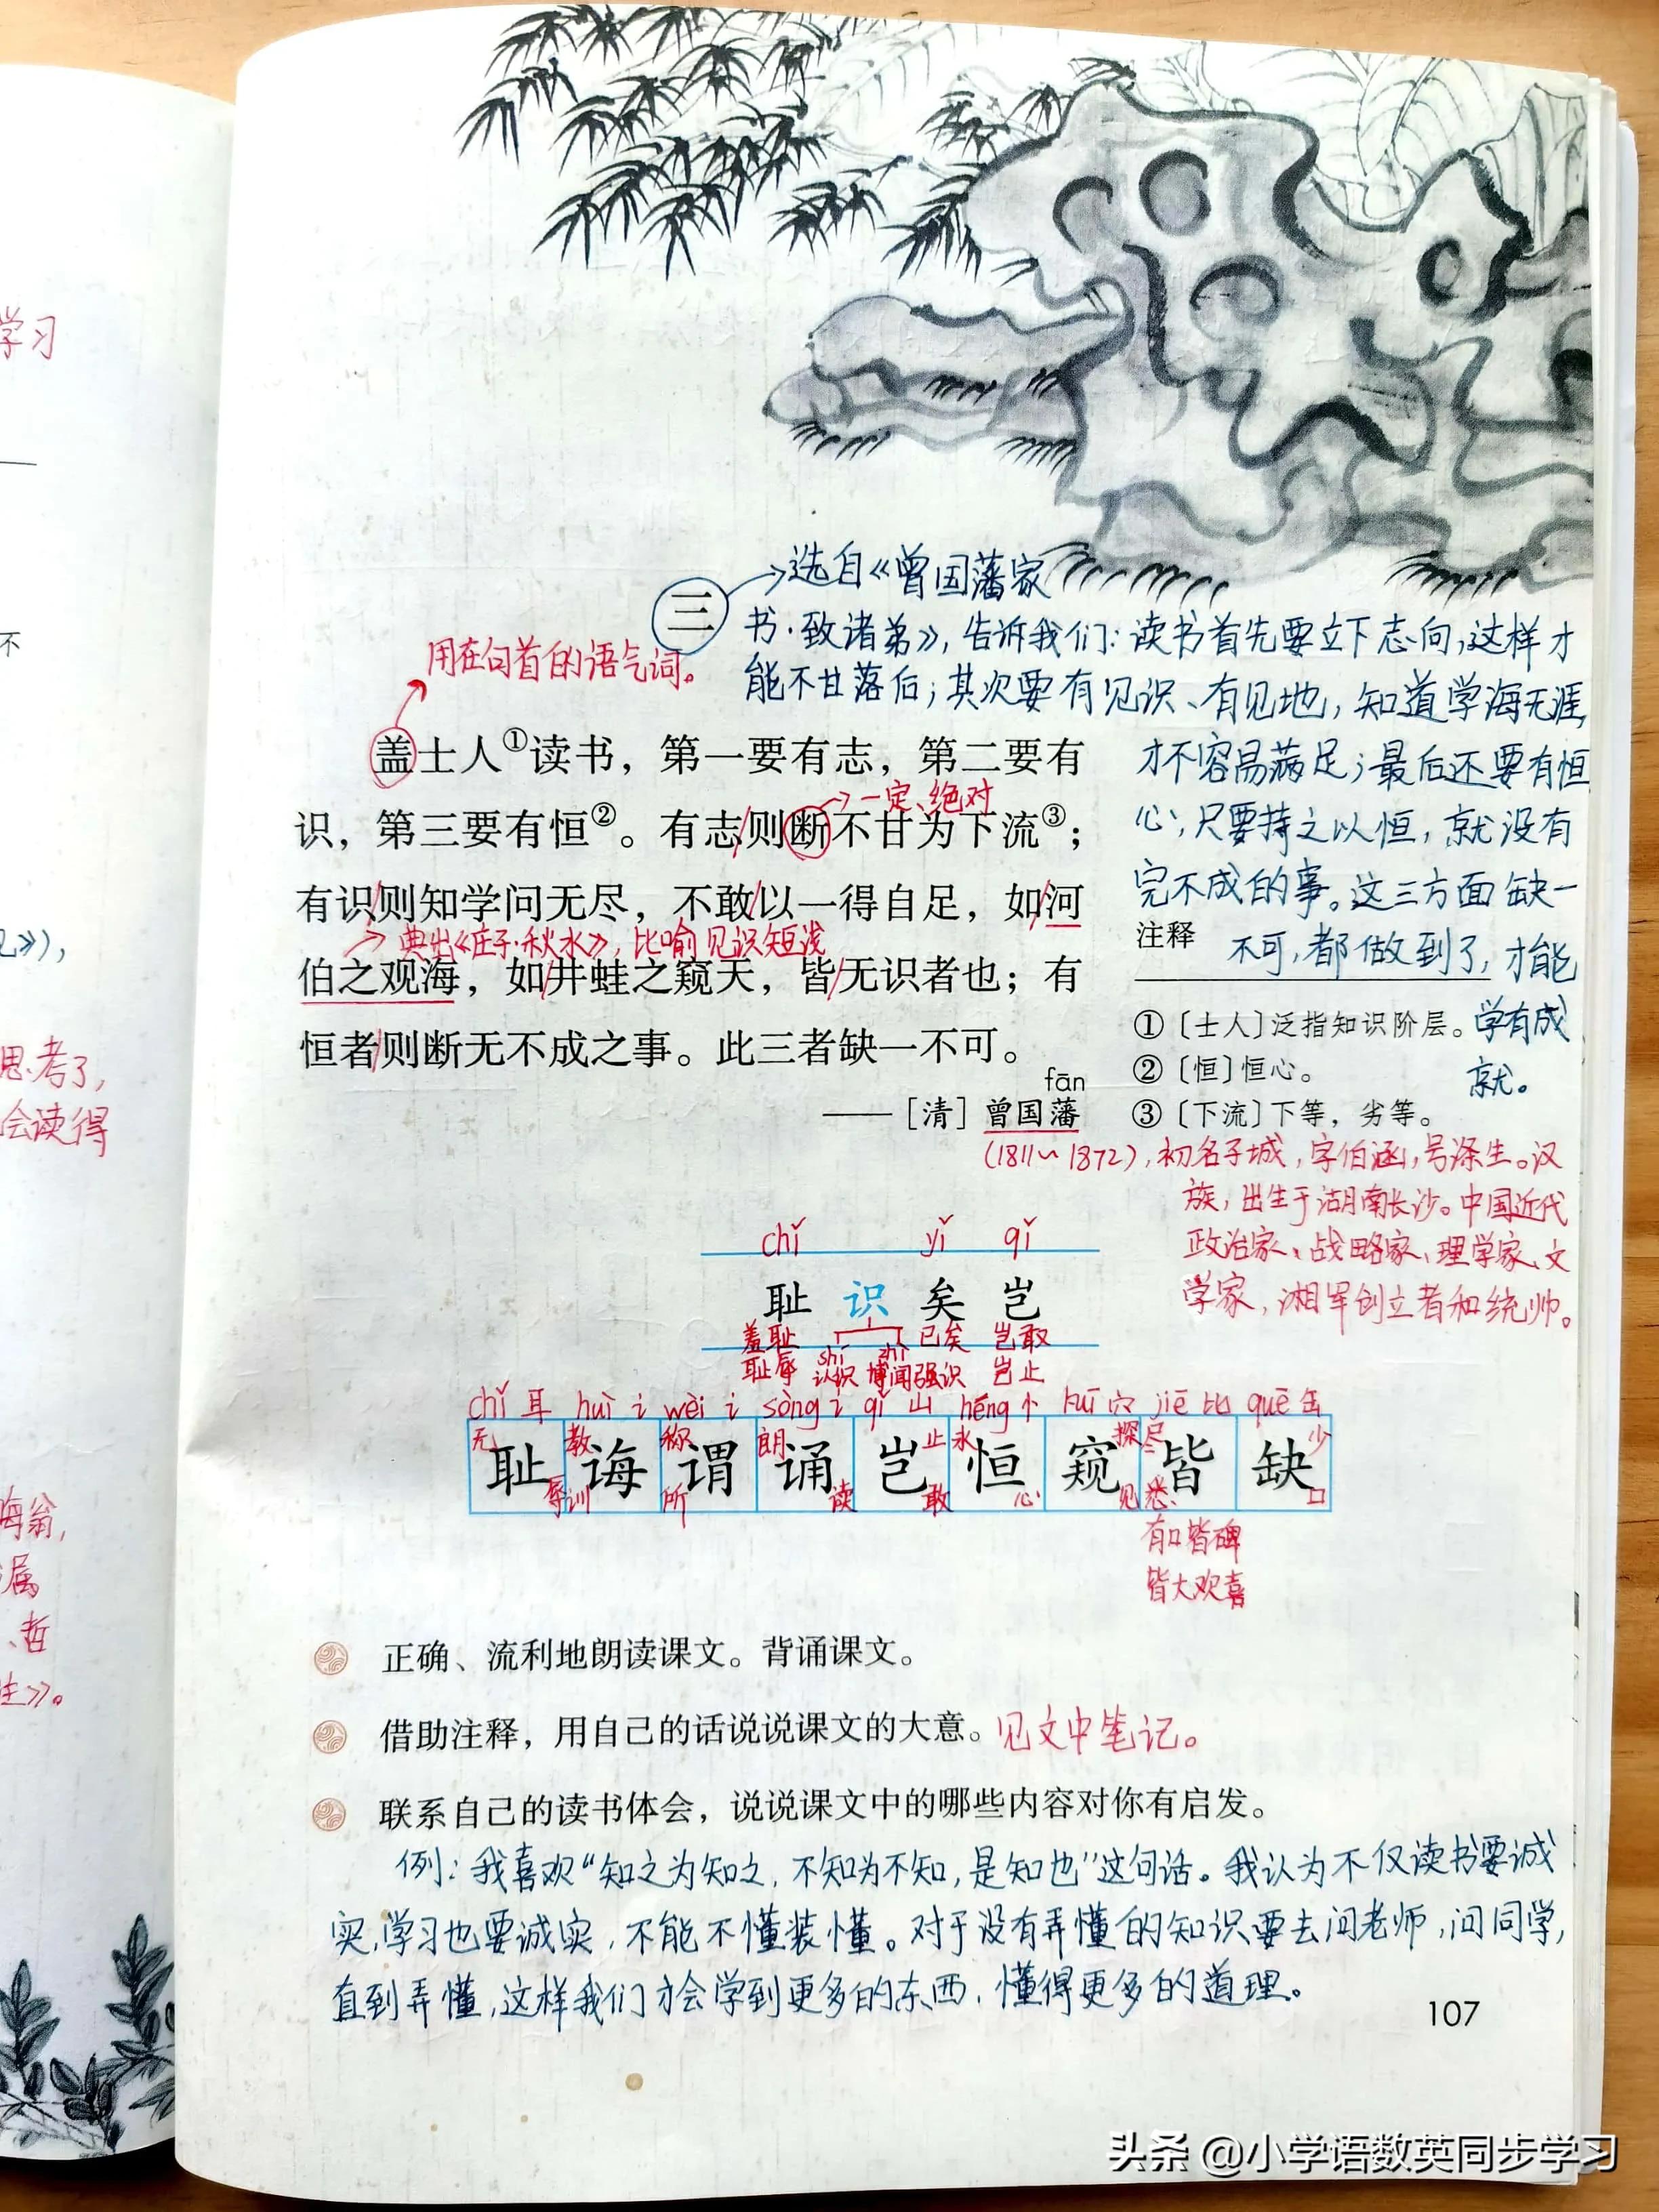 学习
不
见》),
思考了,
会读得
海翁,
属
、哲
生》。
三
选自《曾国藩家
书·致诸弟》,告诉我们:读书首先要立下志向,这样才
能不甘落后;其次要有见识、有见地,知道学海无涯,
才不容易满足;最后还要有恒
心,只要持之以恒,就没有
完不成的事。这三方面缺一
不可,都做到了,才能
学有成
就。
用在句首的语气词。
盖士人①读书,第一要有志,第二要有
一定、绝对
识,第三要有恒②。有志则断不甘为下流③;
有识则知学问无尽,不敢以一得自足,如河
典出《庄子·秋水》,比喻见识短浅
伯之观海,如井蛙之窥天,皆无识者也;有
恒者则断无不成之事。此三者缺一不可。
fān
——[清]曾国藩
注释
①〔士人〕泛指知识阶层。
②〔恒〕恒心。
③〔下流〕下等,劣等。
(1811~1872),初名子城,字伯涵,号涤生。汉
族,出生于湖南长沙。中国近代
政治家、战略家、理学家、文
学家,湘军创立者和统帅。
chǐ yǐ qǐ
耻 识 矣 岂
羞耻 已矣 岂敢
shí zhì
耻辱 认识 博闻强识 岂止
chǐ 耳 huì 讠 wèi 讠 sòng 讠 qǐ 山 héng 忄 kuī 穴 jiē 比 quē 缶
无 教 称 朗 止 永 探 尽 少
耻 诲 谓 诵 岂 恒 窥 皆 缺
辱 训 所 读 敢 心 见 悉 口
有口皆碑
皆大欢喜
正确、流利地朗读课文。背诵课文。
借助注释,用自己的话说说课文的大意。见文中笔记。
联系自己的读书体会,说说课文中的哪些内容对你有启发。
例:我喜欢“知之为知之,不知为不知,是知也”这句话。我认为不仅读书要诚
实,学习也要诚实,不能不懂装懂。对于没有弄懂的知识要去问老师,问同学,
直到弄懂,这样我们才会学到更多的东西,懂得更多的道理。
107
头条 @小学语数英同步学习